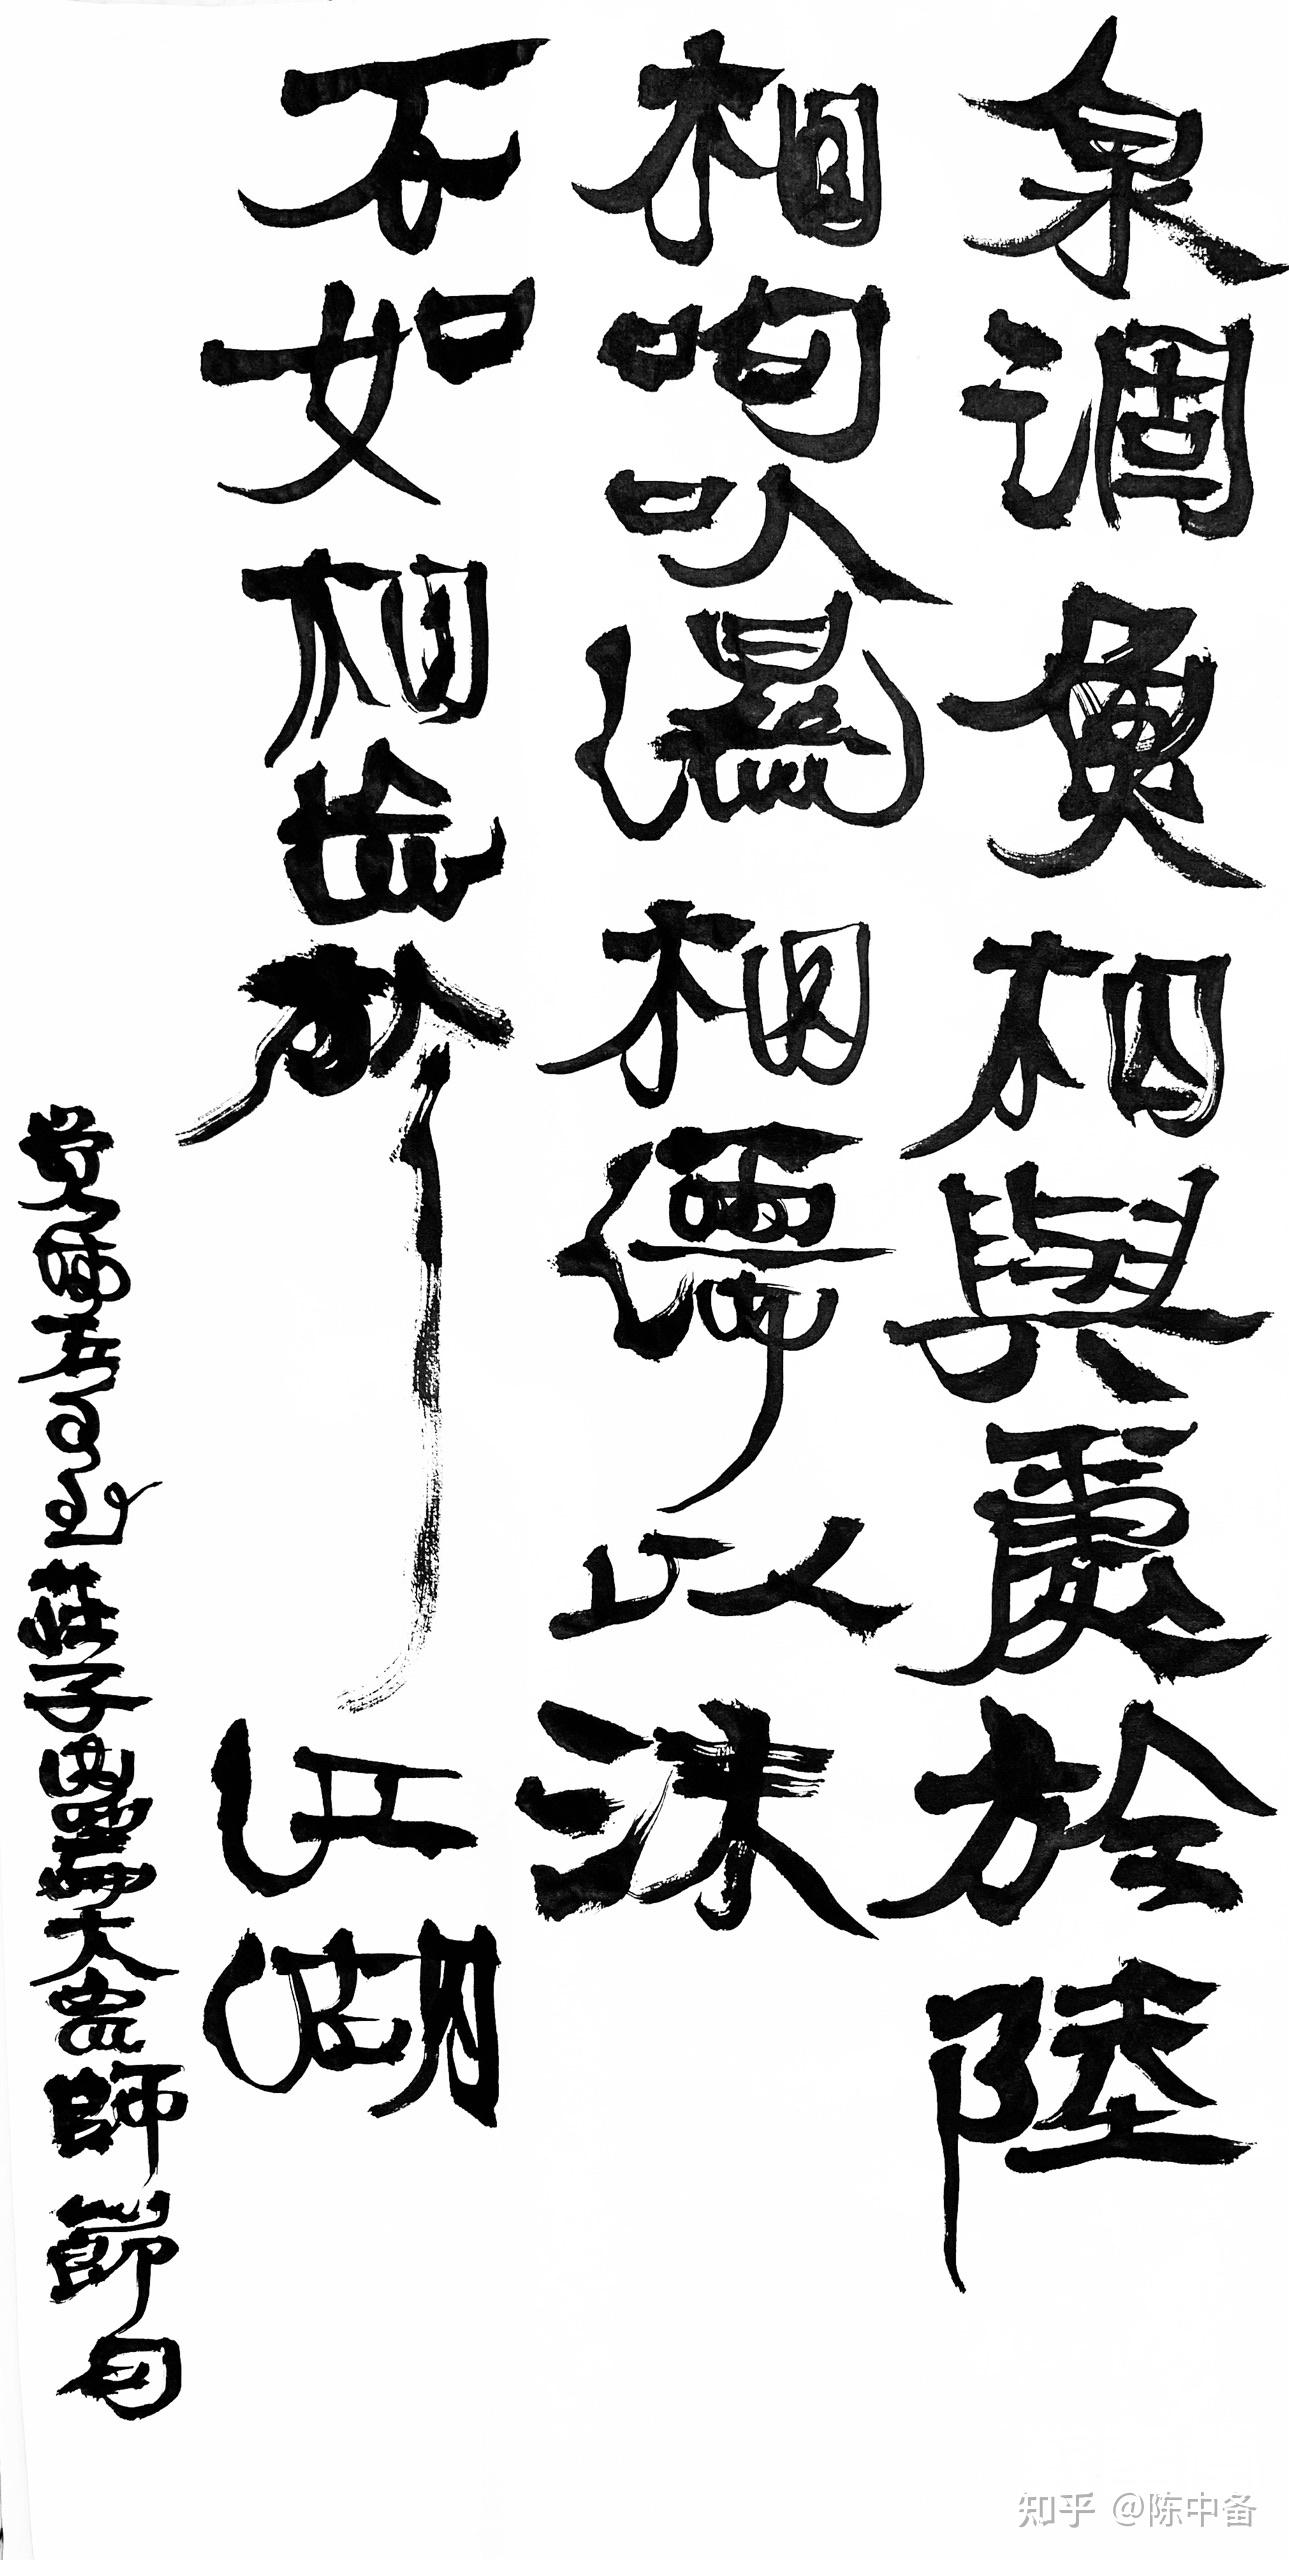 泉涸魚相與處於陸
相呴以濕相濡以沫
不如相忘於江湖
莊子內篇大宗師節句
知乎 @陈中备